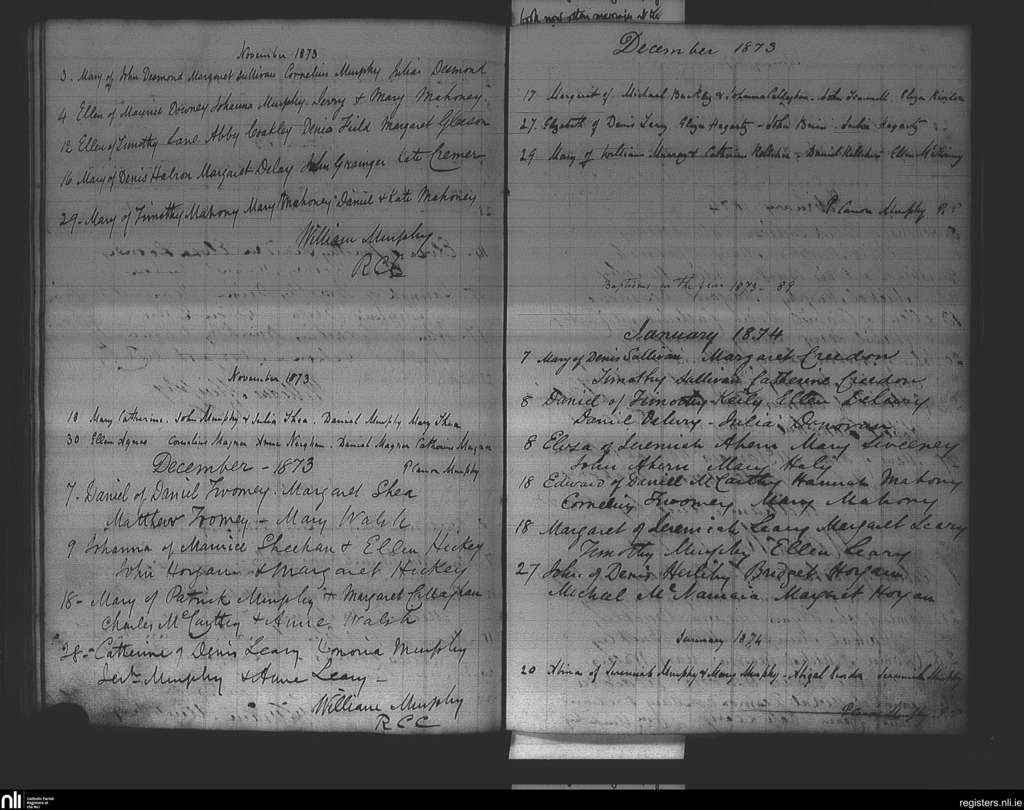 November 1873
3. Mary of John Desmond Margaret Sullivan Cornelius Murphy Julia Desmond
4 Ellen of Maurice Downey Johanna Murphy. Jerry & Mary Mahoney.
12 Ellen of Timothy Lane Abby Coakley Denis Field Margaret Gleeson
16 Mary of Denis Halron Margaret Delay John Grainger Kate Cremer
29 - Mary of Timothy Mahony Mary Mahoney Daniel & Kate Mahoney
William Murphy
RCC
November 1873
18 Mary Catherine. John Murphy & Julia Shea. Daniel Murphy Mary Shea
30 Ellen Agnes Cornelius Magner Anne Daniel Magner Catherine Magner
December - 1873
P Canon Murphy
7. Daniel of Daniel Twomey. Margaret Shea
Matthew Twomey - Mary Walsh
9 Johanna of Maurice Sheehan & Ellen Hickey
John Horgan & Margaret Hickey
18 - Mary of Patrick Murphy & Margaret Callaghan
Charles McCarthy & Anne Walsh
28 - Catherine of Denis Leary Honoria Murphy
Jerh Murphy & Anne Leary -
William Murphy
RCC
book now other marriages at the
December 1873
17 Margaret of Michael Buckley & Johanna John Eliza
27. Elizabeth of Denis Lery Eliza Hagarty - John Julia Hagarty
29 Mary of William Murray & Catherine Kelleher - Daniel Kelleher Ellen
P. Canon Murphy P.P.
Baptisms in the year 1873 - 89
January 1874
7 Mary of Denis Sullivan Margaret Creedon
Timothy Sullivan Catherine Creedon
8 Daniel of Timothy Kiely Ellen
Daniel Julia Donovan
8 Eliza of Jeremiah Ahern Mary Sweeney
John Ahern Mary Haly
18 Edward of Daniel McCarthy Hannah Mahony
Cornelius Twomey Mary Mahony
18 Margaret of Jeremiah Leary Margaret Leary
Timothy Murphy Ellen Leary
27 John of Denis Herlihy Bridget Horgan
Michael McNamara Margaret Horgan
January 1874
20 Abina of Jeremiah Murphy & Mary Murphy - Abigal Jeremiah Murphy
P Canon Murphy P.P.
nli
Catholic Parish
Registers at
the NLI
registers.nli.ie